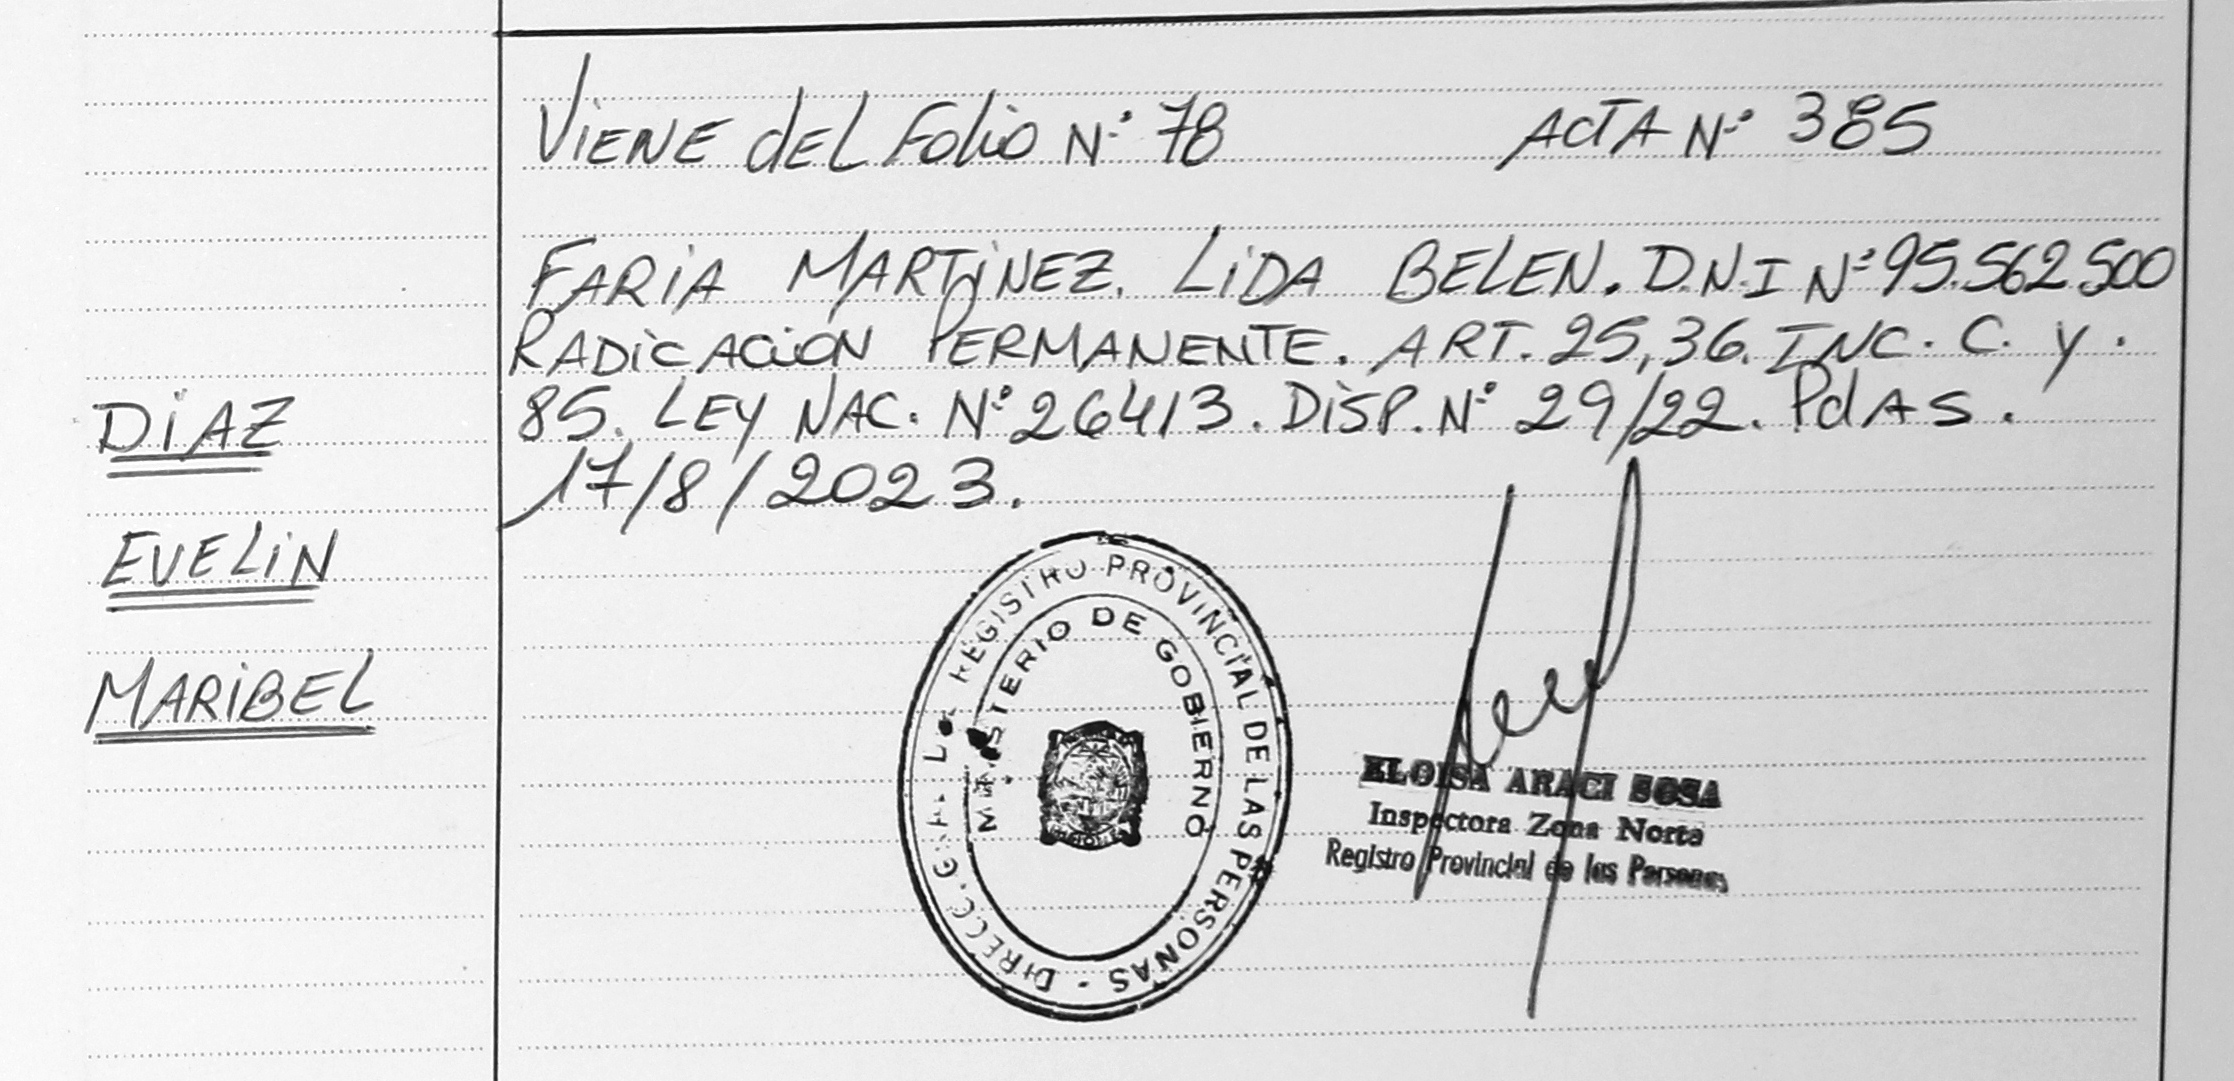 Viene del Folio N° 78 ACTA N° 385
FARIA MARTINEZ. LIDA BELEN. D.N.I N° 95.562500
RADICACIÓN PERMANENTE. ART. 25,36. INC. C. y.
85. LEY NAC. N° 26413. DISP. N° 29/22. PdAS.
17/8/2023.
DIAZ
EVELIN
MARIBEL
DIRECC. GRAL. DEL REGISTRO PROVINCIAL DE LAS PERSONAS -
MINISTERIO DE GOBIERNO
ELOISA ARACI SOSA
Inspectora Zona Norte
Registro Provincial de las Personas